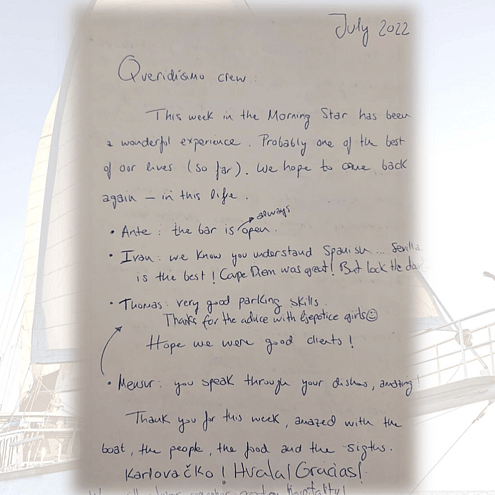 July 2022
Queridísimo crew:
This week in the Morning Star has been
a wonderful experience. Probably one of the best
of our lives (so far). We hope to come back
again – in this life.
always
• Ante: the bar is open.
• Ivan: we know you understand Spanish... Sevilla
is the best! Carpe Diem was great! But lock the
• Thomas: very good parking skills.
Thanks for the advice with girls☺
Hope we were good clients!
• Mensur: you speak through your dishes, amazing!
Thank you for this week, amazed with the
boat, the people, the food and the sights.
Karlovačko! Hvala! Gracias!